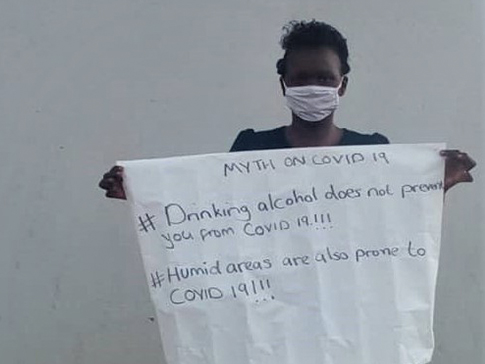 MYTH ON COVID 19
# Drinking alcohol does not prevent
you from COVID 19.!!!
# Humid areas are also prone to
COVID 19!!!